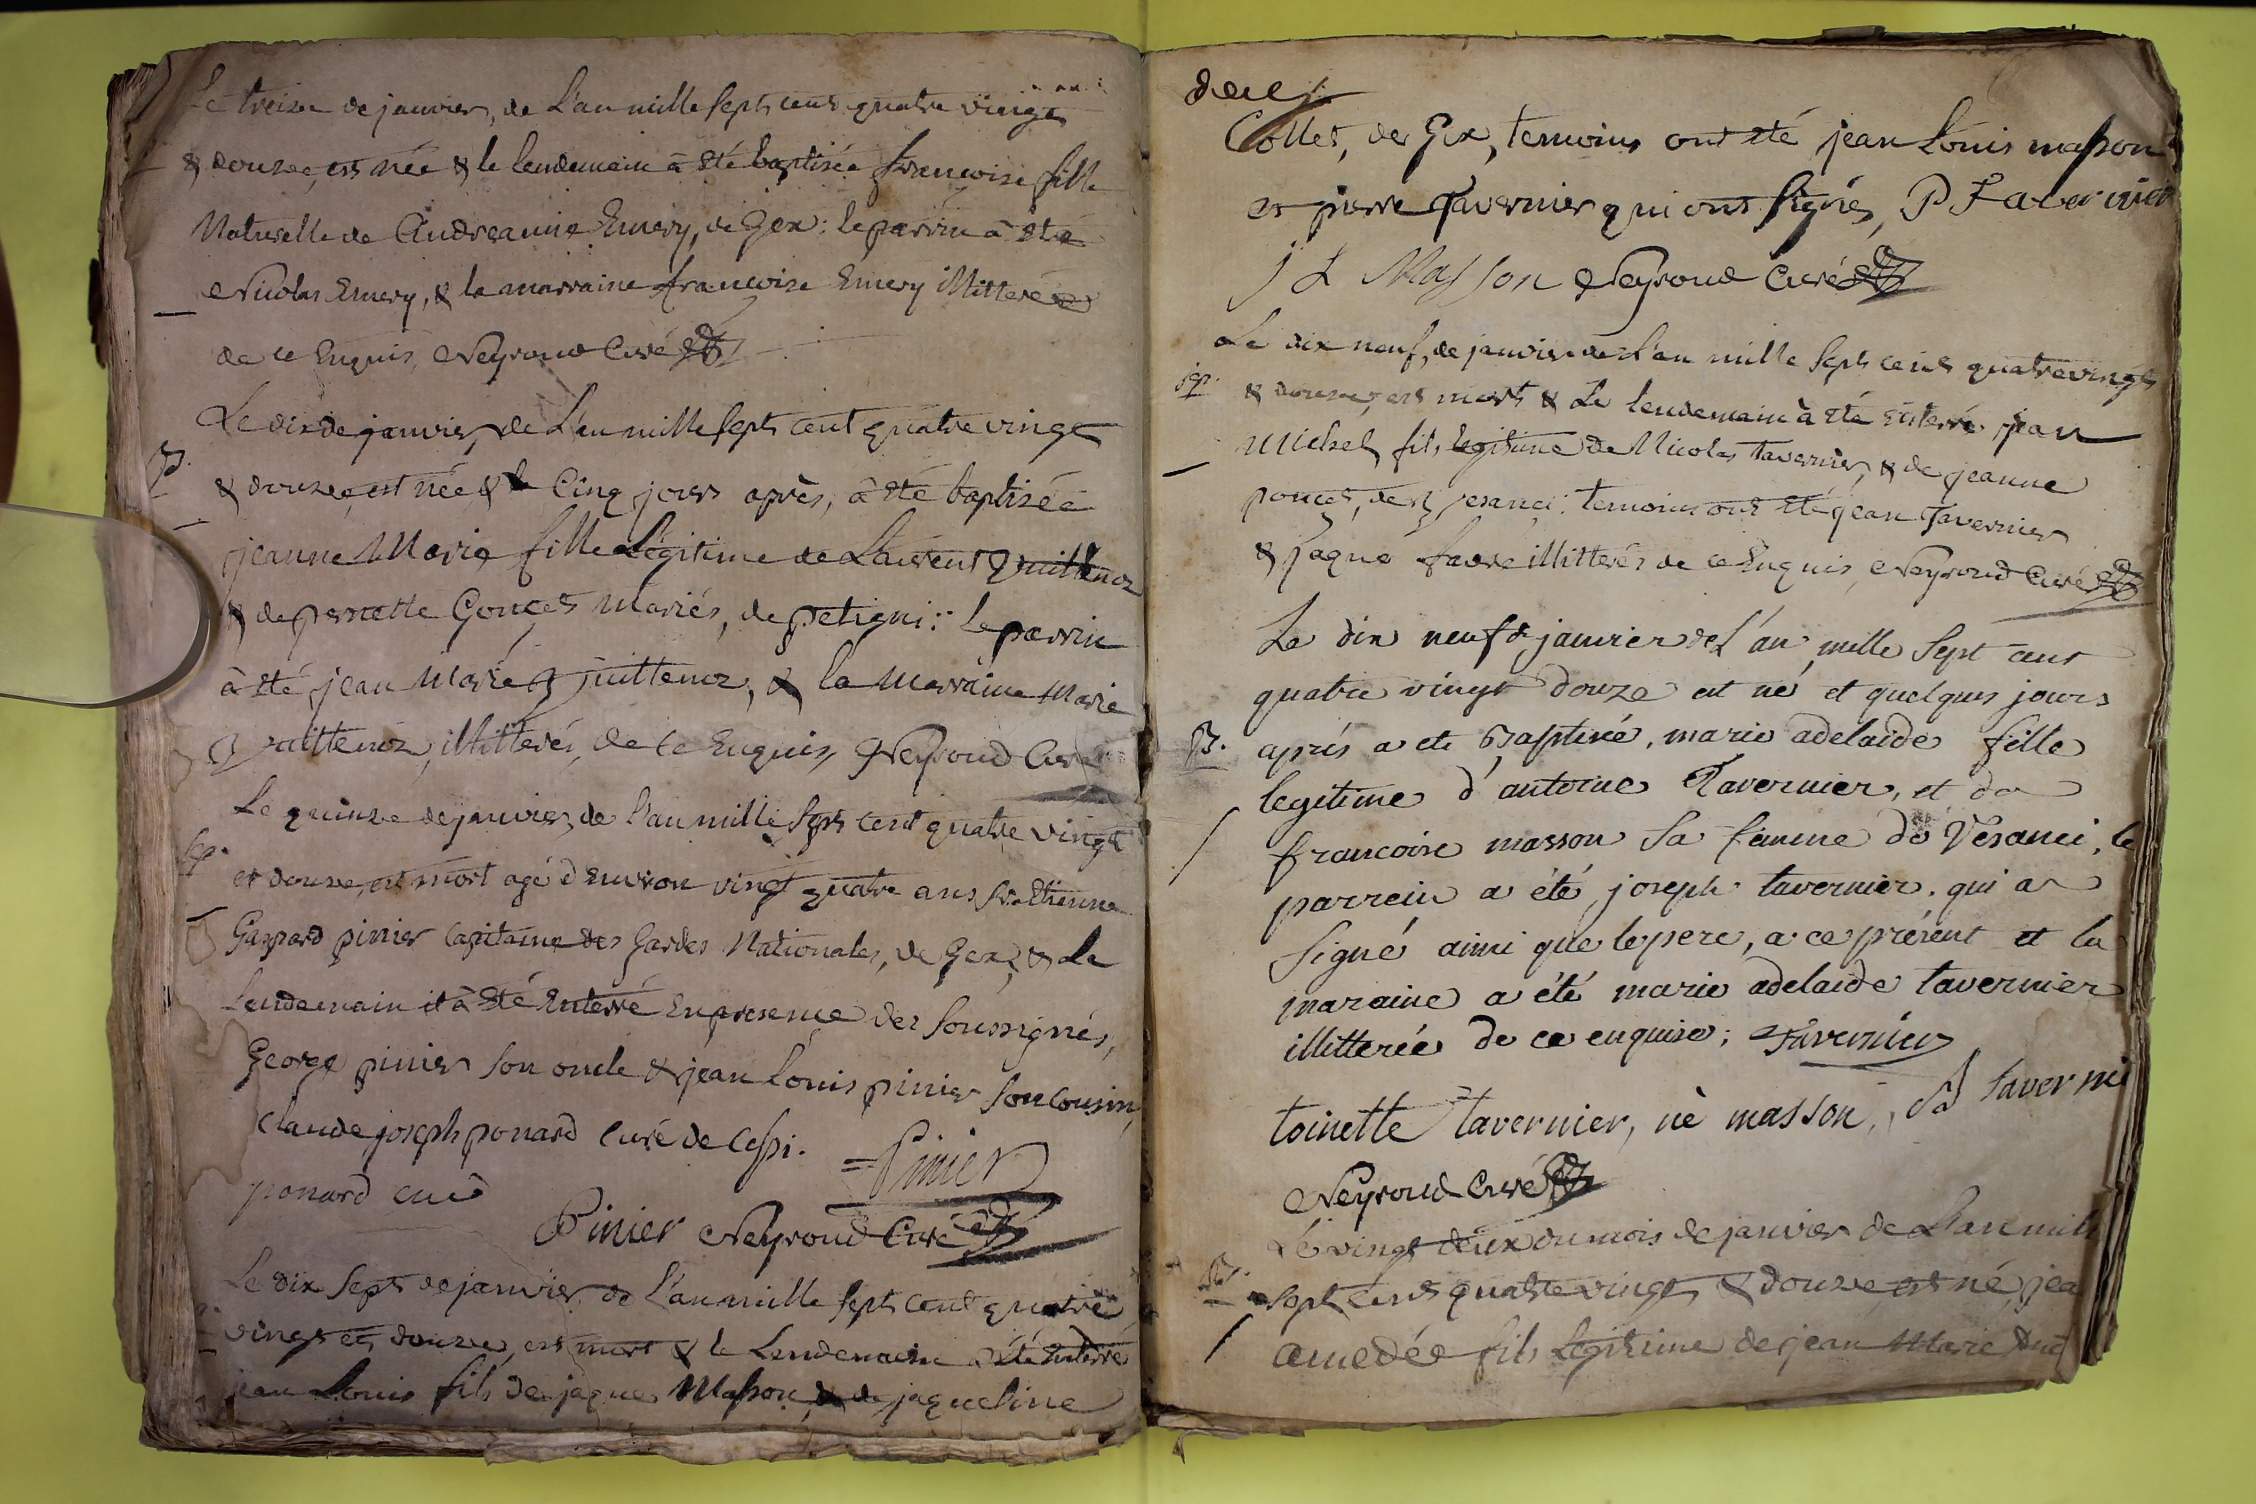 Le treize de janvier, de L'an mille sept cent quatre vingt
& douze, est née & le lendemain à été baptisée francoise fille
Naturelle de Andreanne Emery, de Gex: le parrin à été
Nicolas Emery, & la marraine francoise Emery illitterés
de ce Enquis, Neyroud Curé
Le dix de janvier, de L'an mille sept cent quatre vingt
B.
& douze, est née & le Cinq jours après, à été baptisée
jeanne Marie fille Légitime de Laurent Quittenoz
& de pernette Gonçet mariés, de petigni: le parrin
à été jean Marie Quittenoz, & la Marraine Marie
Quittenoz, illitterés, de ce Enquis, Neyroud Curé
Le quinze de janvier, de l'an mille sept cent quatre vingt
Sep.
et douze, est mort agé d'Environ vingt quatre ans Sr. Etienne
Gaspard pinier Capitaine des Gardes Nationales, de Gex, & Le
Lendemain il à été Enterré En presence des Soussignés,
George pinier son oncle & jean Louis pinier son cousin,
Claude joseph ponard Curé de Cessi.
Pinier
ponard curé
Pinier Neyroud Curé
Le dix sept de janvier, de L'an mille sept cent quatre
vingt et douze, est mort & le Lendemain a été Enterré
jean Louis fils de jaque Masson & de jaqueline
deux
Collet, de Gex, temoins ont été jean Louis masson
et pierre Tavernier qui ont signés, P Tavernier
J L Masson Neyroud Curé
Le dix neuf, de janvier de L'an mille sept cent quatre vingt
sep.
& douze, est mort & Le lendemain à été enterré jean
Michel, fils legitime de Nicolas Tavernier, & de jeanne
ponçet, de Vesanci: temoins ont été jean Tavernier
& jaque favre illitterés de ce Enquis, Neyroud Curé
Le dix neuf de janvier de l'an mille sept cent
quatre vingt douze est né et quelques jours
B. aprés a ete Baptisée, marie adelaide fille
legitime d'antoine Tavernier, et de
francoise masson sa femme de Vésanci, le
parrein a été joseph tavernier. qui a
signé ainsi que le pere, a ce présent et la
maraine a été marie adelaide tavernier
illitterée de ce enquise; Tavernier
toinette tavernier, nè masson, Ja taverni
Neyroud Curé
Le vingt deux du mois de janvier de L'an mille
B.
sept cent quatre vingt & douze est né, jea
amedée fils Légitime de jean Marie